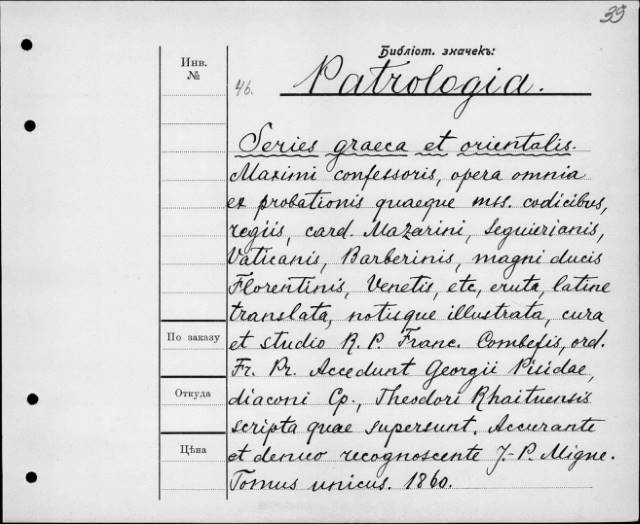 39
Библіот. значекъ:
Инв.
№
46.
Patrologia.
Series graeca et orientalis.
Maximi confessoris, opera omnia
ex probationis quaeque mss. codicibus,
regiis, card. Mazarini, Seguierianis,
Vaticanis, Barberinis, magni ducis
Florentinis, Venetis, etc, eruta, latine
translata, notisque illustrata, cura
По заказу
et studio R. P. Franc. Combefis, ord.
Fr. Pr. Accedunt Georgii Pisidae,
Откуда
diaconi Cp., Theodori Rhaituensis
scripta quae supersunt. Accurante
Цѣна
et denuo recognoscente J.-P. Migne.
Tomus unicus. 1860.